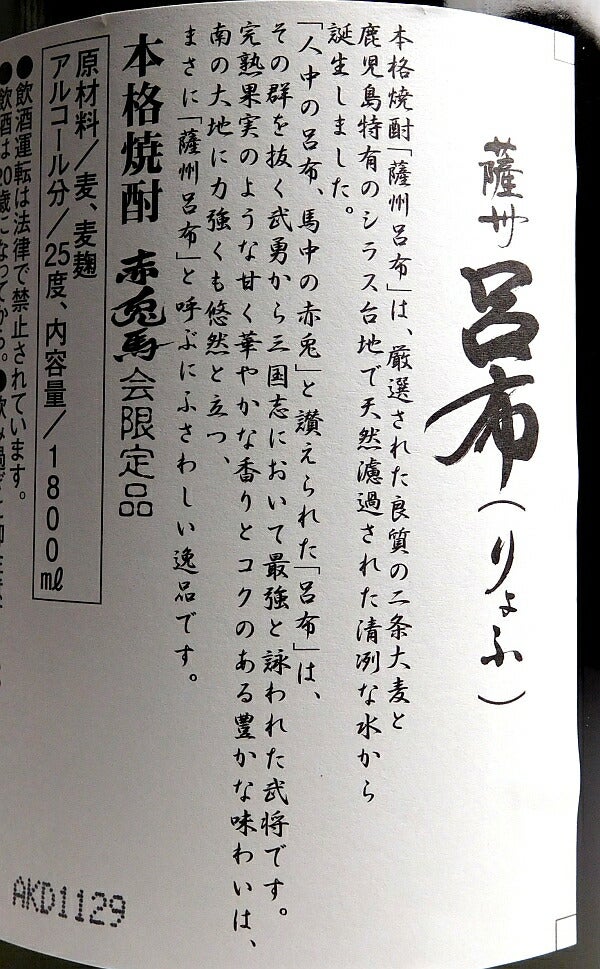 薩州
呂布(りょふ)
本格焼酎「薩州呂布」は、厳選された良質の二条大麦と
鹿児島特有のシラス台地で天然濾過された清冽な水から
誕生しました。
「人中の呂布、馬中の赤兎」と讃えられた「呂布」は、
その群を抜く武勇から三国志において最強と詠われた武将です。
完熟果実のような甘く華やかな香りとコクのある豊かな味わいは、
南の大地に力強くも悠然と立つ、
まさに「薩州呂布」と呼ぶにふさわしい逸品です。
本格焼酎 赤兎馬会限定品
原材料/麦、麦麹
アルコール分/25度、内容量/1800㎖
●飲酒運転は法律で禁止されています。
●飲酒は20歳になってから。●飲み過ぎ
AKD1129